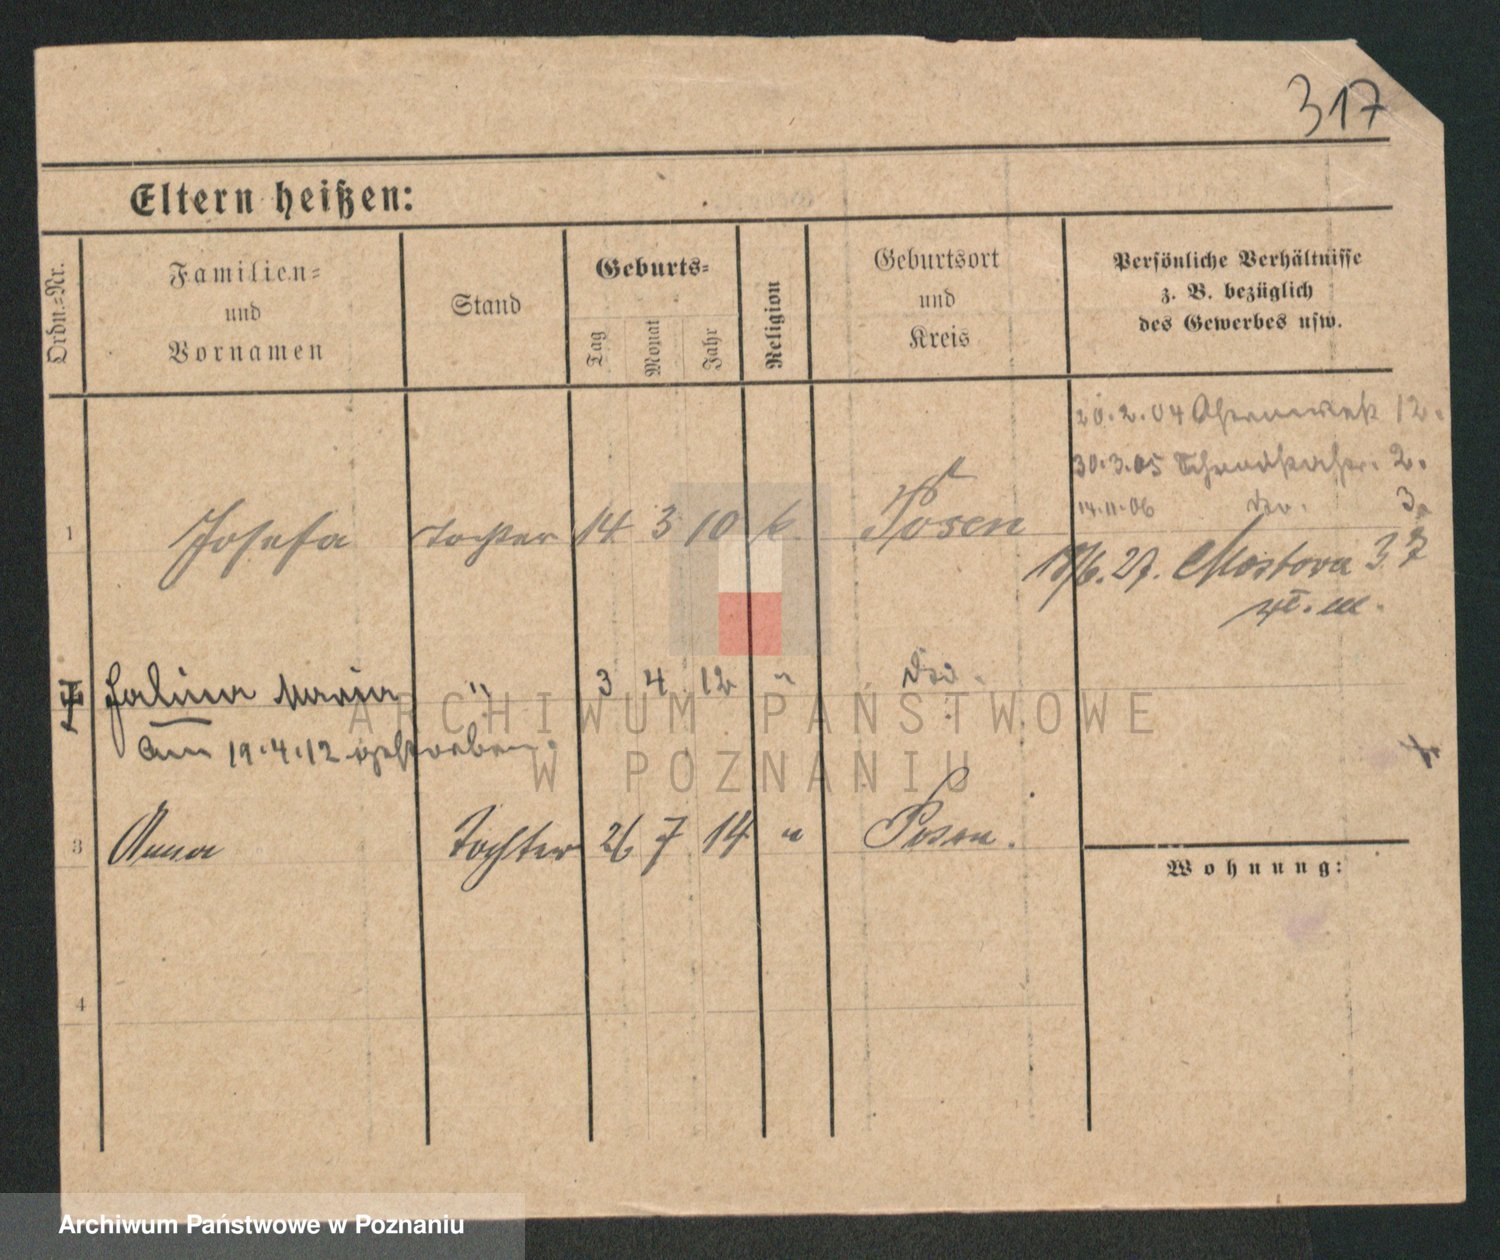 317
Eltern heißen:
Ordn.=Nr.
Familien=
und
Vornamen
Stand
Geburts=
Tag
Monat
Jahr
Religion
Geburtsort
und
Kreis
Persönliche Verhältnisse
z. B. bezüglich
des Gewerbes usw.
20.2.04 12.
30.3.05 2.
14.11.06 do. 3.
1 Josefa Tochter 14 3 10 k. Posen
18/6.27. Mostowa 37
Halina Maria " 3 4 12 " do.
am 19.4.12 gestorben.
3 Anna Tochter 26 7 14 " Posen.
Wohnung:
4
ARCHIWUM PAŃSTWOWE
W POZNANIU
Archiwum Państwowe w Poznaniu